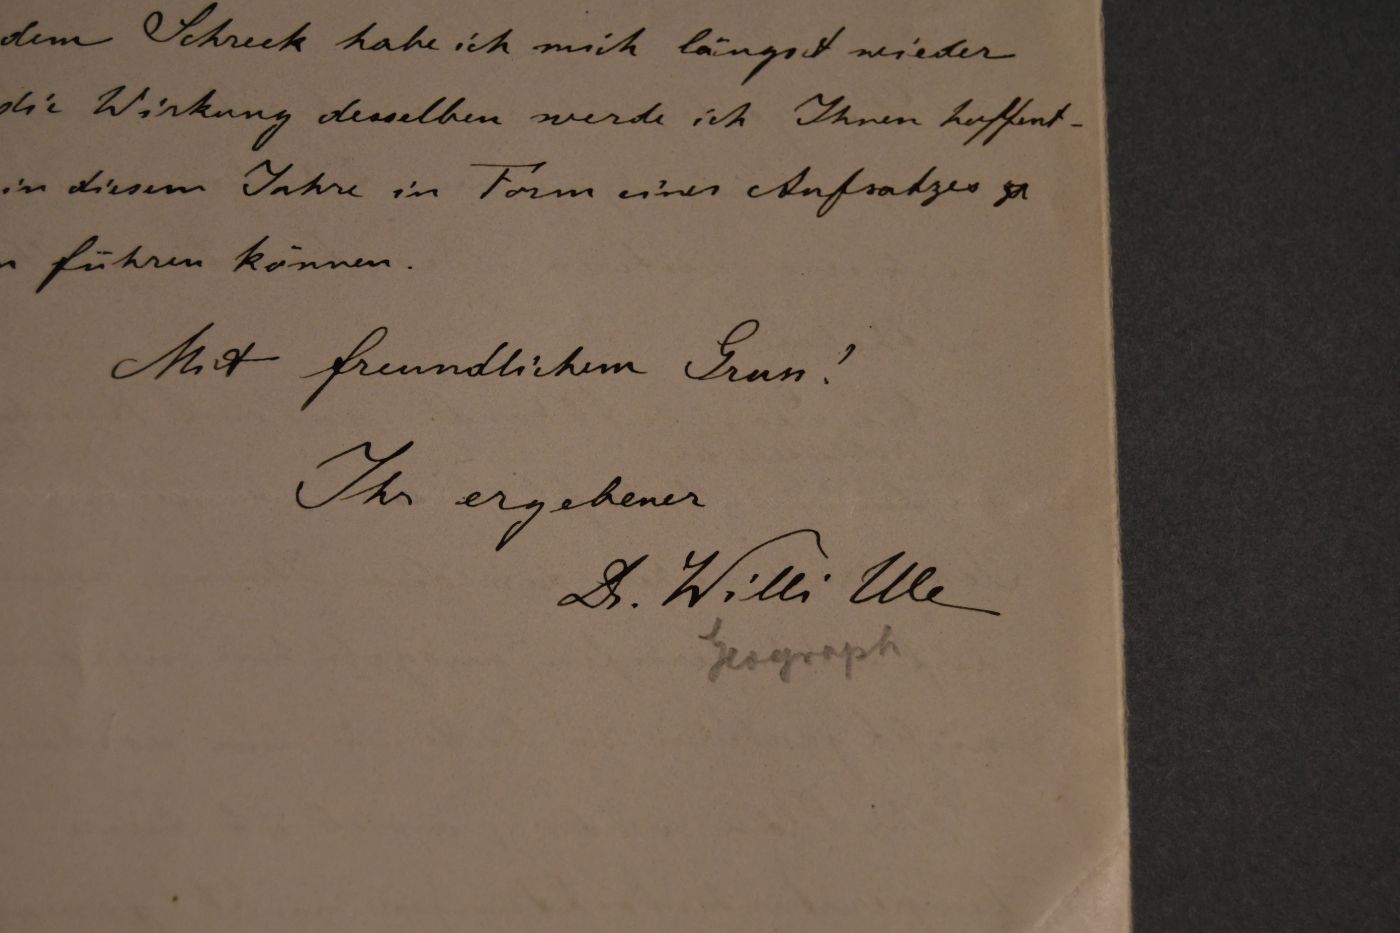 dem Schreck habe ich mich längst wieder
die Wirkung desselben werde ich Ihnen hoffent-
in diesem Jahre in Form eines Aufsatzes
führen können.
Mit freundlichem Gruss!
Ihr ergebener
Dr. Willi Ule
Geograph